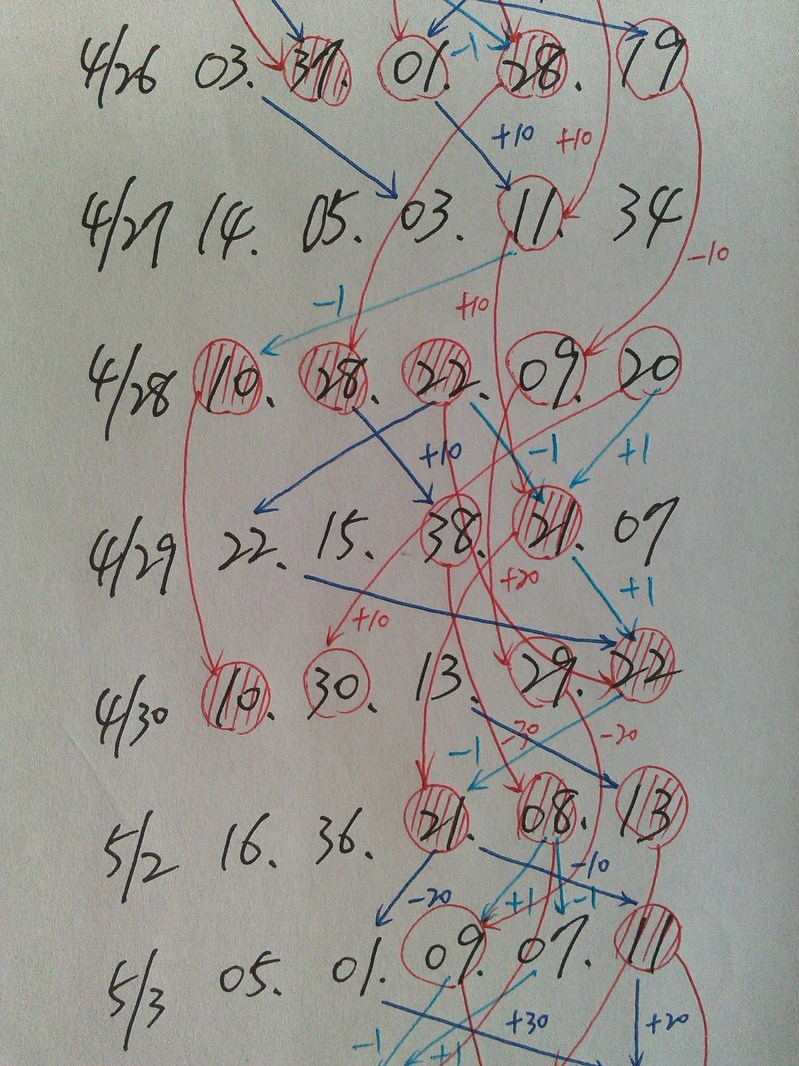 4/26 03. 37. 01. -1 28. 19
+10 +10
4/27 14. 05. 03. 11. 34
-1 +10 -10
4/28 10. 28. 22. 09. 20
+10 -1 +1
4/29 22. 15. 38. 21. 07
+10 +20 +1
4/30 10. 30. 13. 29. 22
-1 -30 -20
5/2 16. 36. 21. 08. 13
-20 +1 -1 -10
5/3 05. 01. 09. 07. 11
-1 +1 +30 +20